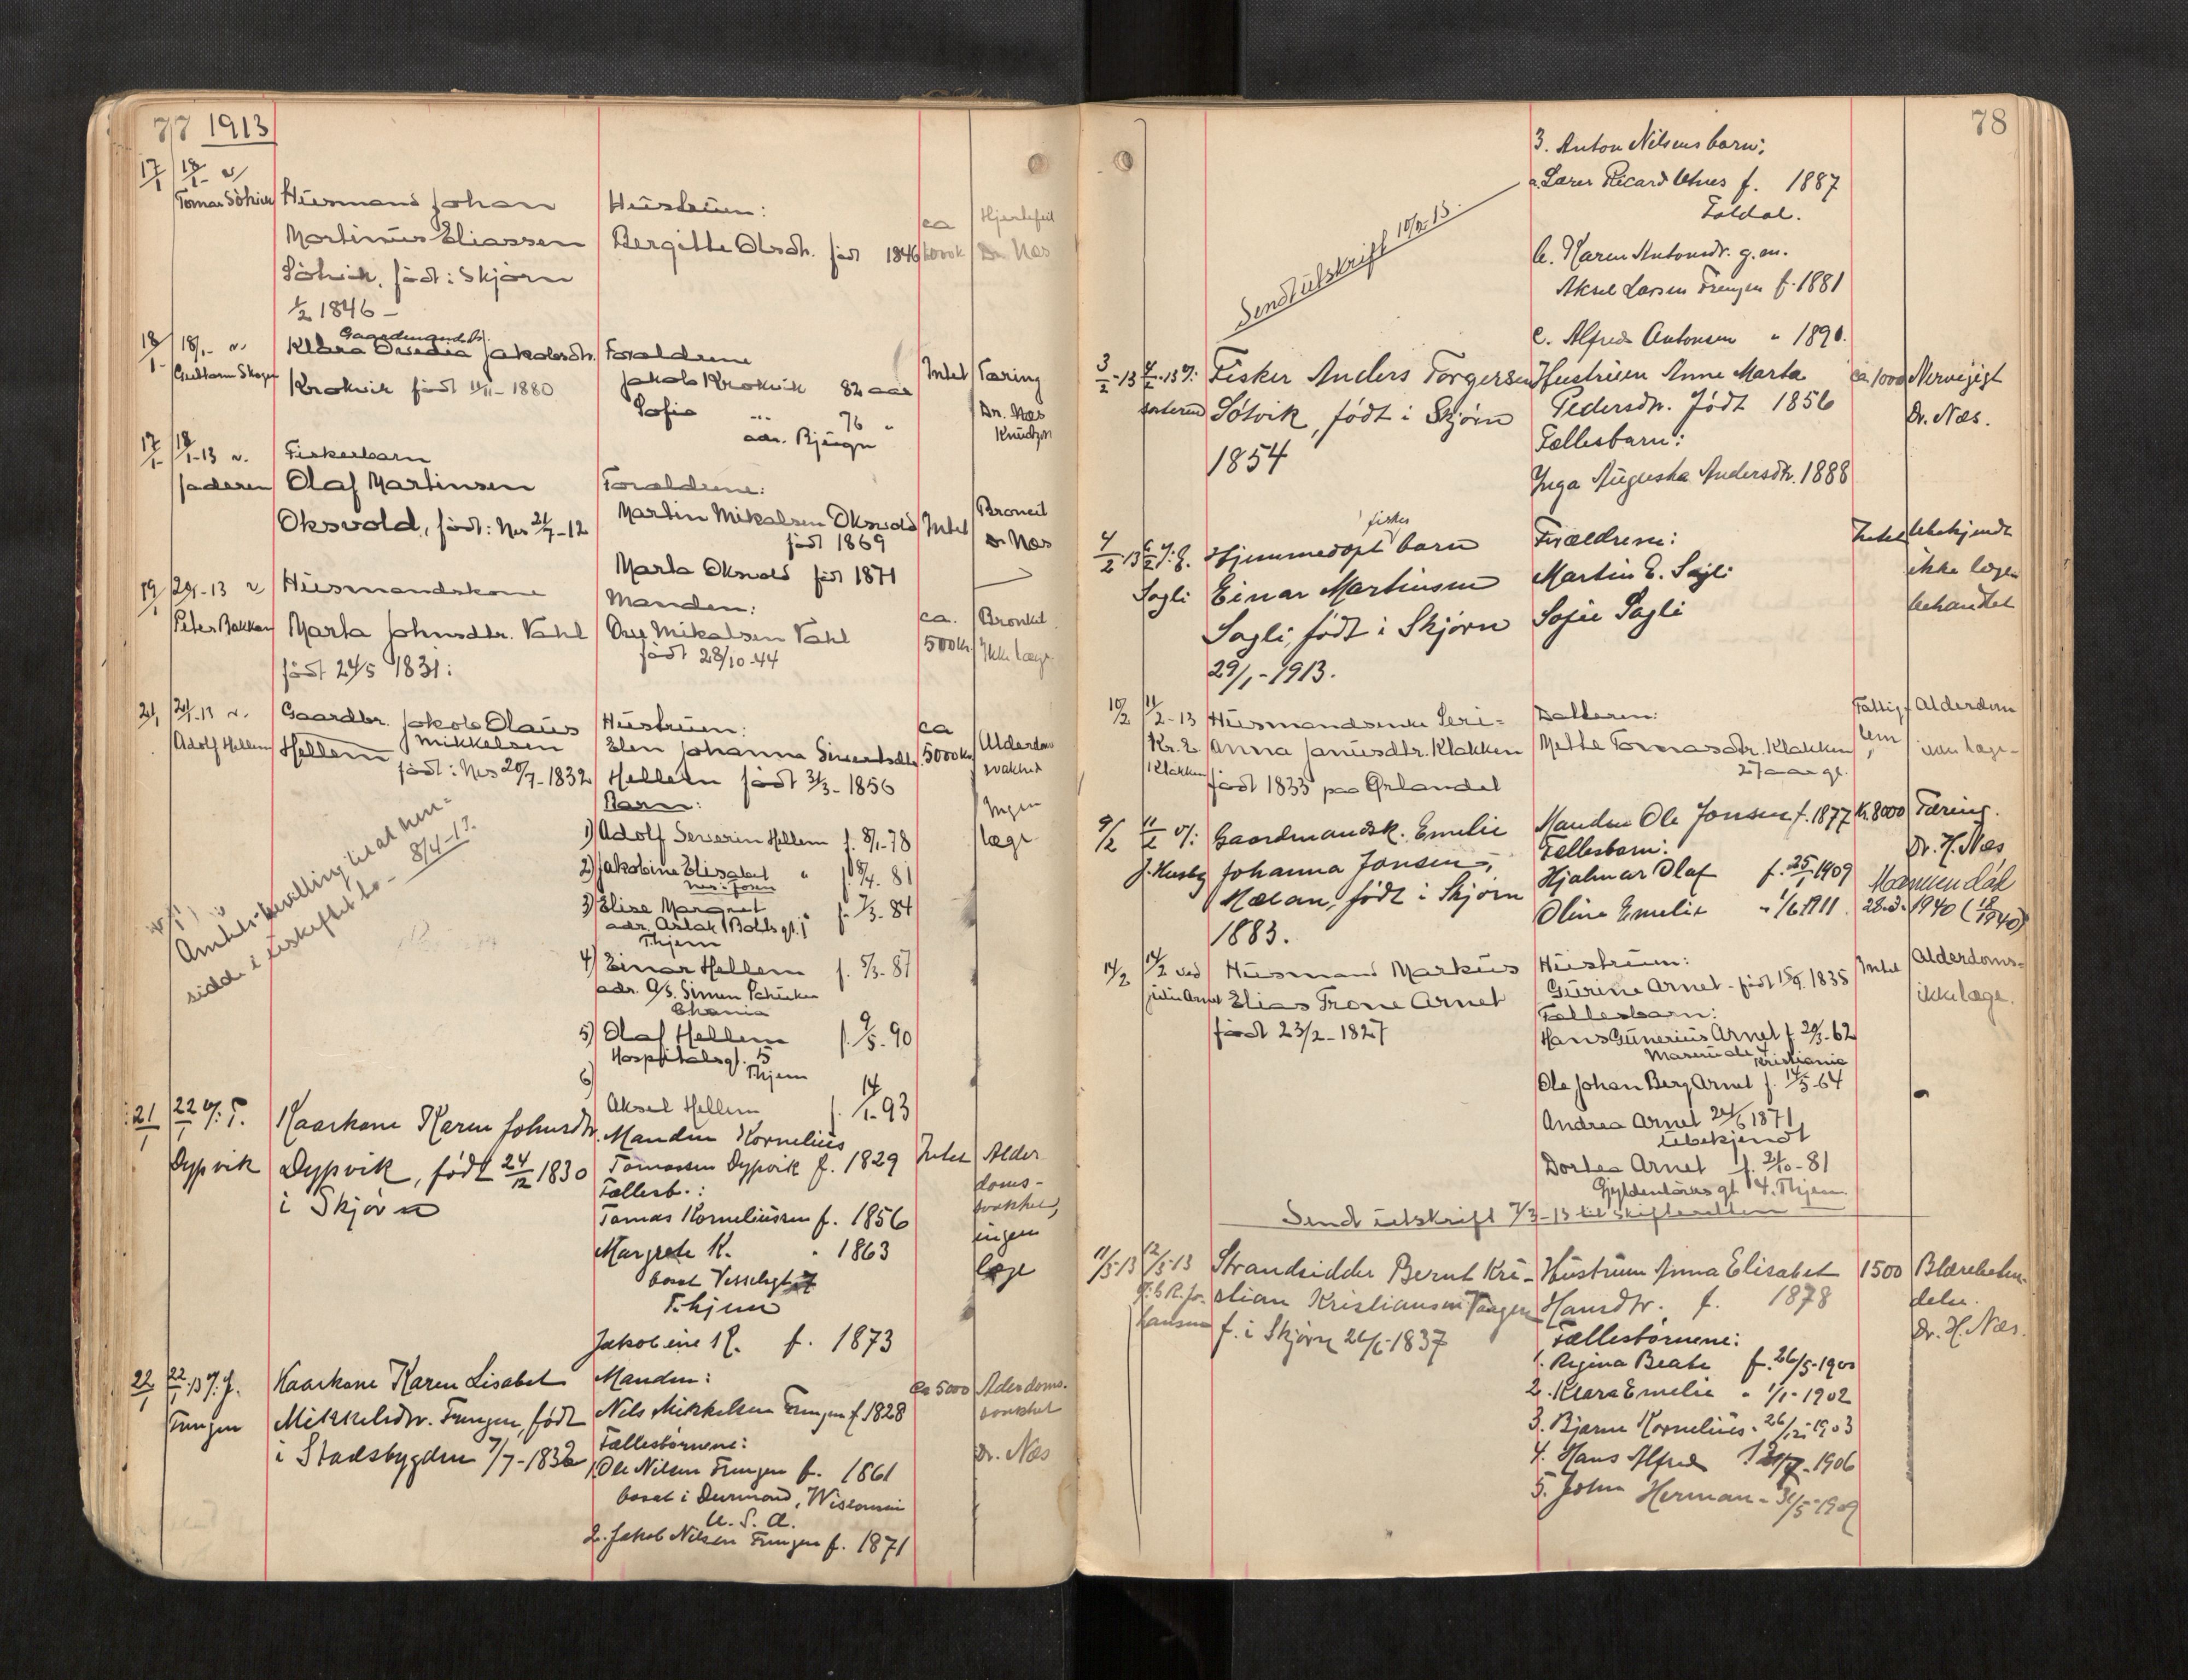 77 1913
17/1 18/1- v/
Tomas Söhvik
Husmand Johan
Martinus Eliassen
Söhvik, född: Skjörn
1/2 1846 -
Hustruen:
Bergitte Olsdt. född 1846
ca
Hjertefeil
Dr. Næs
18/1- 18/1- v.
Gaardmandsb.
Klara Ovedia Jakobsdtr.
Krokvik född 11/11- 1880
Forældrene
Jakob Krokvik 82 aar
Sofie " 76 "
adr. Bjugn
Intet
Tæring
Dr. Næs
Knudtzon
17/1- 18/1-13 v.
faderen
Fiskerbarn
Olaf Martinsen
Oksvold, född: Nes 21/7-12
Forældrene:
Martin Mikalsen Oksvold
född 1869
Marta Oksvold född 1871
Intet
Dr. Næs
19/1 20/1-13 v
Peter Bakken
Husmandskone
Marta Johnsdtr. Vahl
född 24/5 1831:
Manden:
Ove Mikalsen Vahl
född 28/10-44
ca.
500 kr.
Bronkit.
Ikke læge
21/1 21/1-13 v.
Adolf Hellem
Gaardbr. Jakob Olaus
Mikkelsen
Hellem
född: Nes 20/7-1832
Hustruen:
Elen Johanna Sivertsdtr.
Hellem född 31/3- 1856
Barn:
1) Adolf Severin Hellem f. 8/1-78
2) Jakobine Elisabet "
81
3) Elise Margret " f. 7/3-84
adr. Aslak Boltsgt.
Thjem
4) Einar Hellem f. 5/3-87
adr. Simen
5) Olaf Hellem f. 9/5-90
Hospitalsgt. 5
Thjem
6)
Aksel Hellem f. 14/1-93
ca
5000 kr
Alderdoms
svakhet
Ingen
læge
Amtsbevilling til at hen-
sidde i uskiftet bo- 8/4-13.
21/1 22/1 v/: T.
Dypvik
Kaarkone Karen Johnsdtr.
Dypvik, født 24/12 1830
i Skjørn
Manden Kornelius
Tomassen Dypvik f. 1829
Fællesb.:
Tomas Korneliussen f. 1856
Margrete K. " 1863
bosat
T.hjem
Jakobine K. f. 1873
Intet
Alder-
doms-
svakhet,
ingen
læge
22/1 22/1-13 v/: J.
Frengen
Kaarkone Karen Lisabet
Mikkelsdtr. Frengen, født
i Stadsbygden 7/7-1832
Manden:
Nils Mikkelsen Frengen f. 1828
Fællesbørnene:
1. Ole Nilsen Frengen f. 1861
bosat i Durmond, Wisconsin
U.S.A.
2. Jakob Nilsen Frengen f. 1871
Ca 5000
Alderdoms-
svakhet
Dr. Næs
78
3. Anton Nilsens barn:
a. Lærer Ricard f. 1887
Foldal.
b. Karen Antonsdr. g.m.
Aksel Larsen Frengen f. 1881
c. Alfred Antonsen " 1890.
Sendt utskrift 10/2-13.
3/2-13 4/2-13 v/:
Fisker Anders Torgersen
Sötvik, født i Skjørn
1854
Hustruen Anne Marta
Pedersdtr. født 1856
Fællesbarn:
Inga Augusta Andersdtr. 1888
ca 1000
Nervegigt
Dr. Næs.
4/2-13 6/2 v/: E.
Sagli
fisker
Hjemmedøpt barn
Einar Martinsen
Sagli, født i Skjørn
29/1-1913.
Forældrene:
Martin E. Sagli
Sofie Sagli
Intet
Ubekjendt
ikke læge-
behandlet
10/2 11/2-13
Kr. E.
Klakken
Husmandsenke Seri-
anna Janusdtr. Klakken
född 1833 paa Ørlandet
Datteren:
Mette Tomasdtr. Klakken
27 aar gl.
Fattig-
lem
Alderdom
uten læge-
9/2 11/2 v/:
J. Husby
Gaardmandsk. Emelie
Johanna Jonsen,
Mælan, født i Skjørn
1883.
Manden Ole Jonsen f. 1877
Fællesbarn:
Hjalmar Olaf f. 25/1 1909
Oline Emelie " 1/6 1911
Kr. 8000
Tæring.
Dr. H. Næs
Mannen död
28.3.1940 (18/1940)
14/2 14/2 ved
Julie Arnet
Husmand Markus
Elias Trone Arnet
född 23/2-1827
Hustruen:
Gurine Arnet - född 15/9. 1835
Fællesbarn:
Hans Gunerius Arnet f 20/3-62
Kristiania
Ole Johan Berg Arnet f. 14/5-64
Andrea Arnet 24/6 1871
Ubekjendt
Dortea Arnet f. 21/10-81
Gyldenløves gt 4. Thjem.
Intet
Alderdoms-
ikke læge.
Sendt utskrift 7/3-13 til skifteretten
11/5-13 12/5-13
v/: B. R. Jo-
hansen
Strandsidder Bernt Kri-
stian Kristiansen Vaagen
f. i Skjørn 26/6-1837
Hustruen Anna Elisabet
Hansdtr. f. 1878
Fællesbørnene:
1. Regina Beate f. 26/5-1900
2. Klara Emelie " 1/1-1902
3. Bjarne Kornelius " 26/12-1903
4. Hans Alfred 1906
5. Johan Herman " 31/5-1909
1500
Dr. H. Næs.